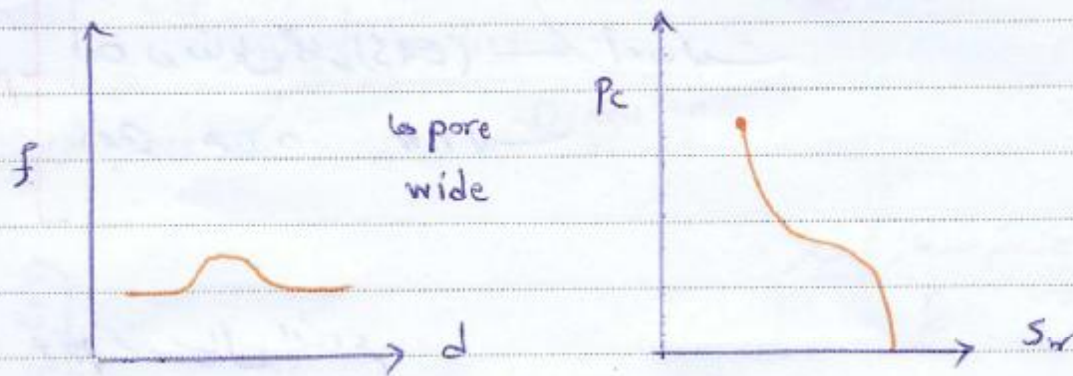 f
d
↳ pore
wide
Pc
Sw